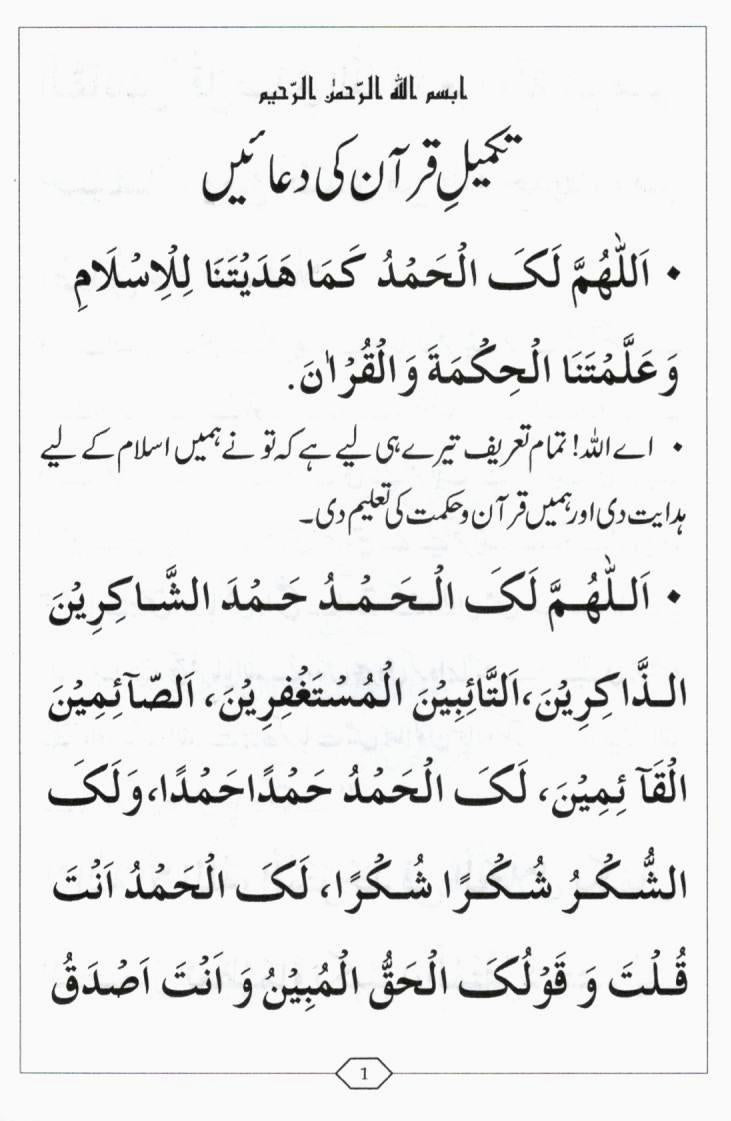 بسم الله الرّحمٰن الرّحیم
تکمیلِ قرآن کی دعائیں
• اَللّٰهُمَّ لَکَ الْحَمْدُ کَمَا هَدَیْتَنَا لِلْاِسْلَامِ
وَعَلَّمْتَنَا الْحِکْمَةَ وَالْقُرْاٰنَ.
• اے اللہ! تمام تعریف تیرے ہی لیے ہے کہ تو نے ہمیں اسلام کے لیے
ہدایت دی اور ہمیں قرآن و حکمت کی تعلیم دی۔
• اَللّٰهُمَّ لَکَ الْحَمْدُ حَمْدَ الشَّاکِرِیْنَ
الذَّاکِرِیْنَ،اَلتَّائِبِیْنَ الْمُسْتَغْفِرِیْنَ، اَلصَّآئِمِیْنَ
الْقَآئِمِیْنَ، لَکَ الْحَمْدُ حَمْدًاحَمْدًا،وَلَکَ
الشُّکْرُ شُکْرًا شُکْرًا، لَکَ الْحَمْدُ اَنْتَ
قُلْتَ وَ قَوْلُکَ الْحَقُّ الْمُبِیْنُ وَ اَنْتَ اَصْدَقُ
1